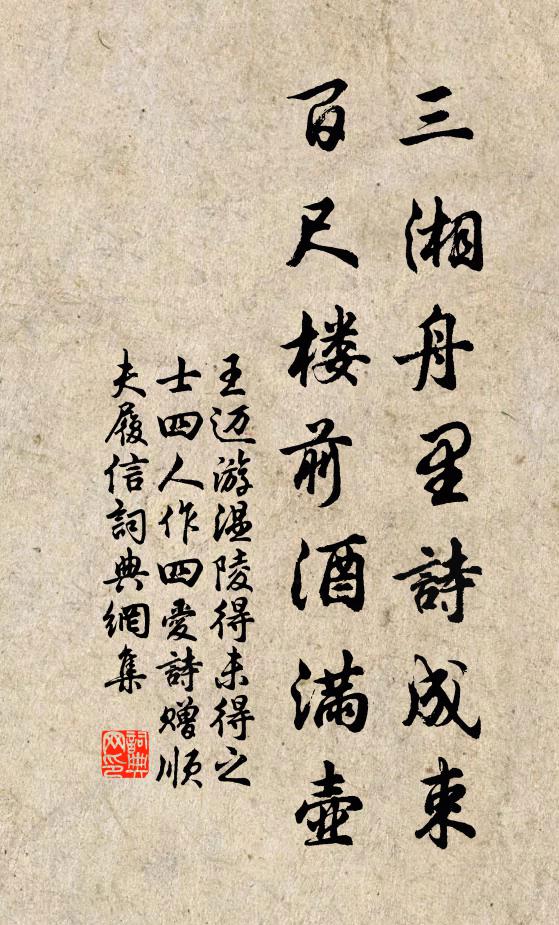 三湘舟里詩成束
百尺楼前酒滿壺
王迈游温陵得未得之
士四人作四愛詩赠順
夫履信詞典網集
詞典网印